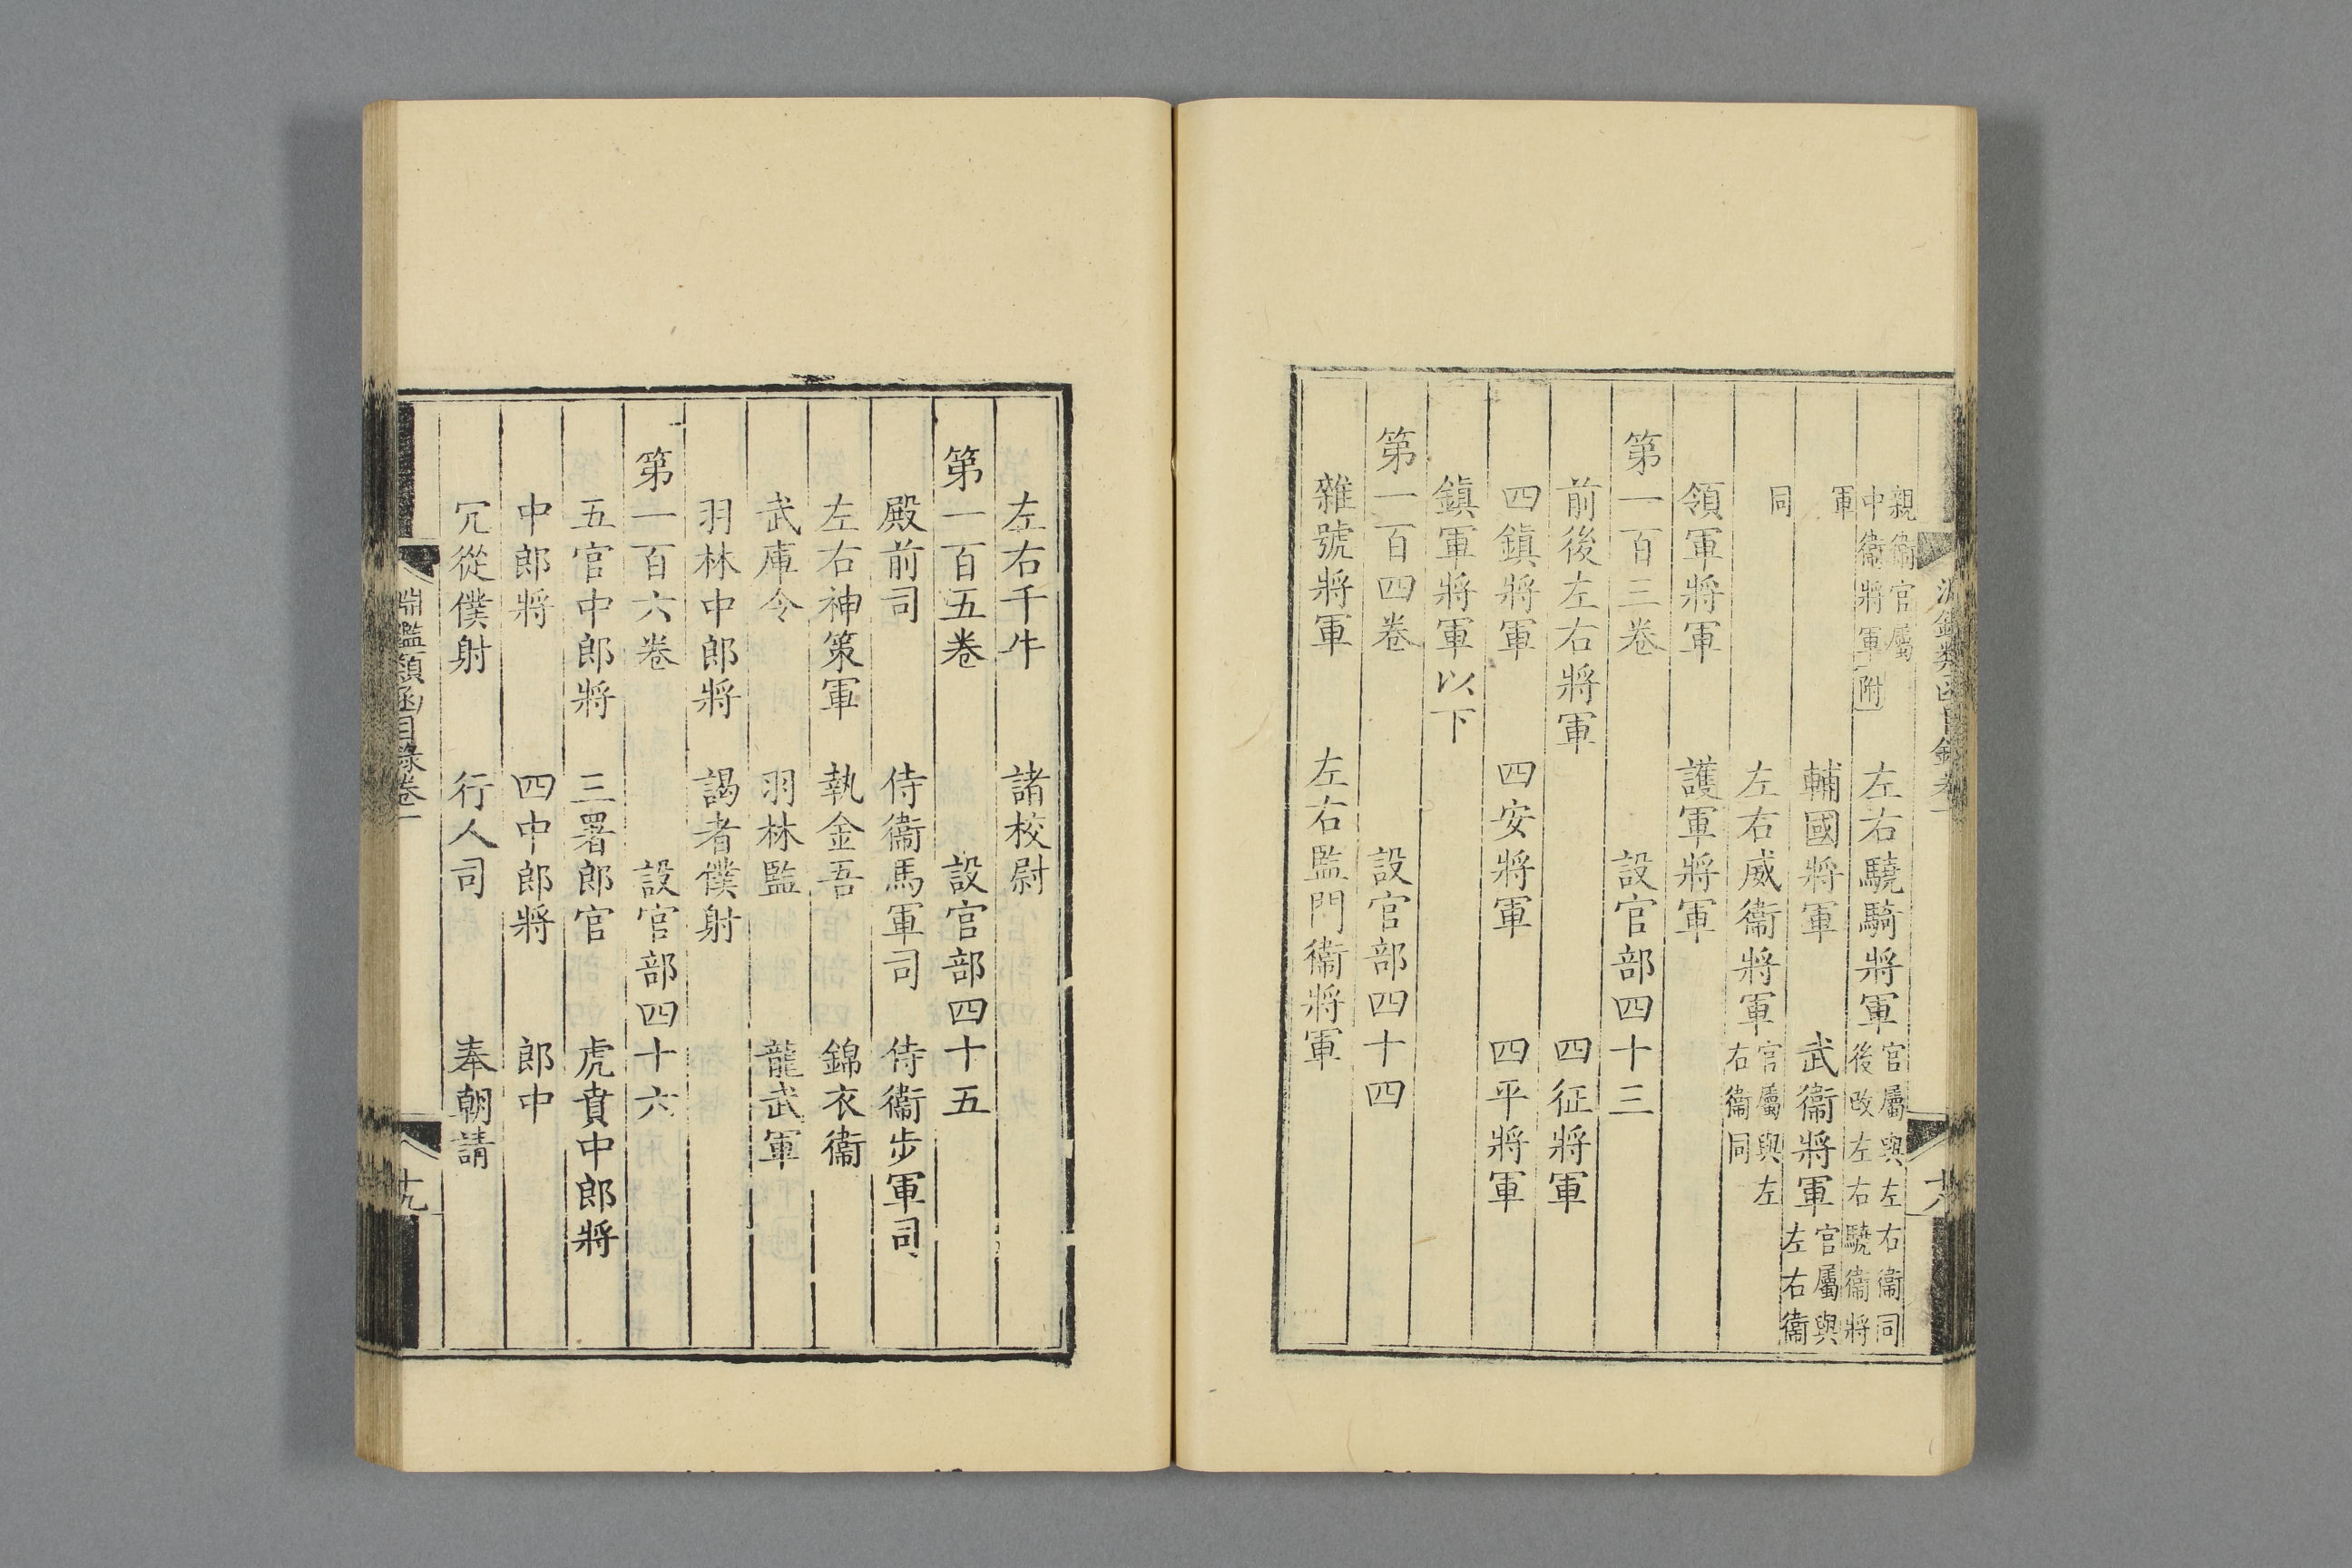 親衞官屬
中衞將軍附
左右驍騎將軍
官屬與左右衞同
後改左右驍衞將
軍
輔國將軍
武衞將軍
官屬與
左右衞
同
左右威衞將軍
官屬與左
右衞同
領軍將軍 護軍將軍
第一百三卷 設官部四十三
前後左右將軍 四征將軍
四鎮將軍 四安將軍 四平將軍
鎮軍將軍以下
第一百四卷 設官部四十四
雜號將軍 左右監門衞將軍
左右千牛 諸校尉
第一百五卷 設官部四十五
殿前司 侍衞馬軍司 侍衞步軍司
左右神策軍 執金吾 錦衣衞
武庫令 羽林監 龍武軍
羽林中郎將 謁者僕射
第一百六卷 設官部四十六
五官中郎將 三署郎官 虎賁中郎將
中郎將 四中郎將 郎中
冗從僕射 行人司 奉朝請
淵鑑類函目錄卷一